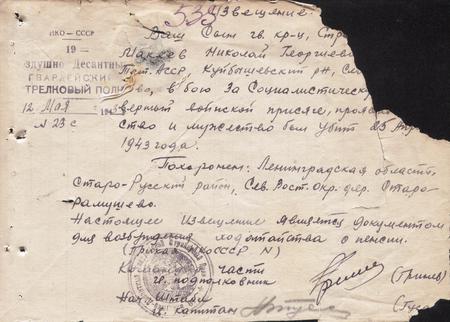 НКО – СССР
– 19 –
здушно Десантны
ГВАРДЕЙСКИ
ТРЕЛКОВЫЙ ПОЛ
12 Мая
N 23 с
538
звещение
Ваш Сын гв. кр-ц,
Макеев Николай Георгиеви
Тат. АССР, Куйбышевский р-н,
во, в бою За Социалистическу
верный воинской присяге, прояв
ство и мужество был убит 25 Апр
1943 года.
Похоронен: Ленинградская область,
Старо-Русский район, Сев. Вост. Окр. дер. Старо-
Рамушево.
Настоящее Извещение является документом
для возбуждения ходотайства о пенсии.
(Приказ НКОСССР N)
Командир части
гв. подполковник
Нач. Штаба
гв. капитан